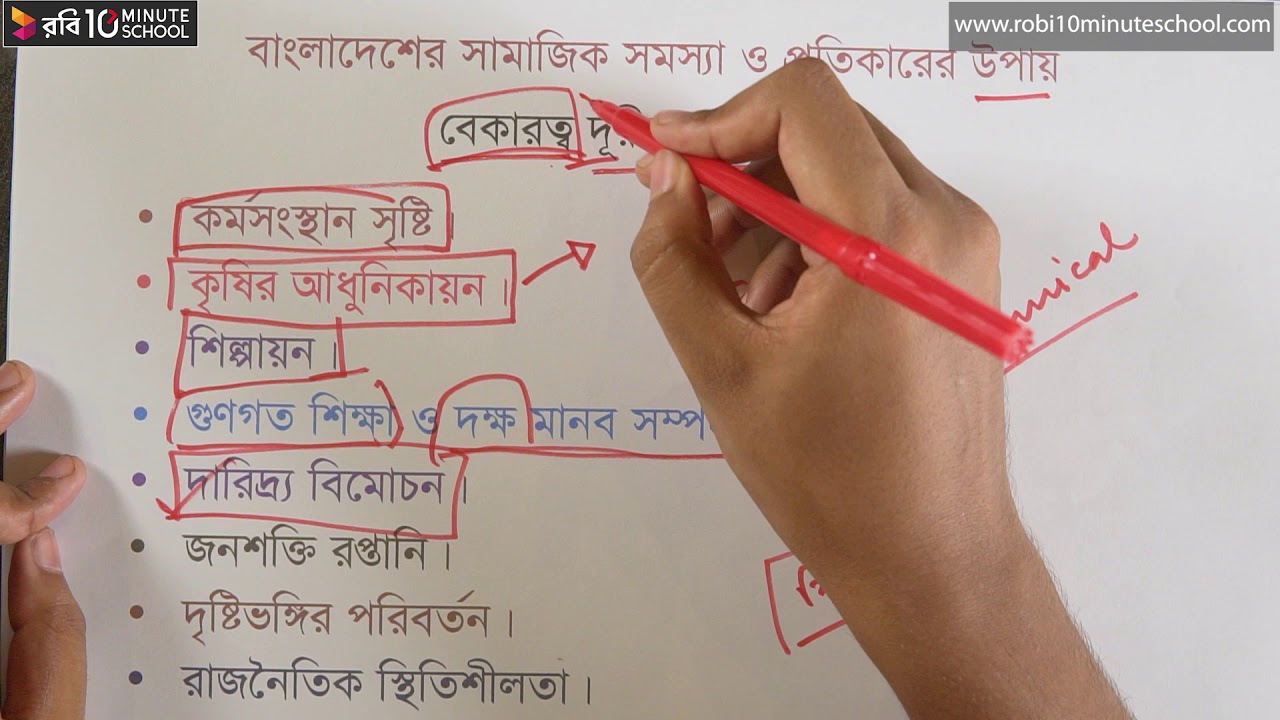 রবি 10 MINUTE SCHOOL
www.robi10minuteschool.com
বাংলাদেশের সামাজিক সমস্যা ও প্রতিকারের উপায়
বেকারত্ব
• কর্মসংস্থান সৃষ্টি।
• কৃষির আধুনিকায়ন।
• শিল্পায়ন।
• গুণগত শিক্ষা ও দক্ষ মানব
• দারিদ্র্য বিমোচন।
• জনশক্তি রপ্তানি।
• দৃষ্টিভঙ্গির পরিবর্তন।
• রাজনৈতিক স্থিতিশীলতা।